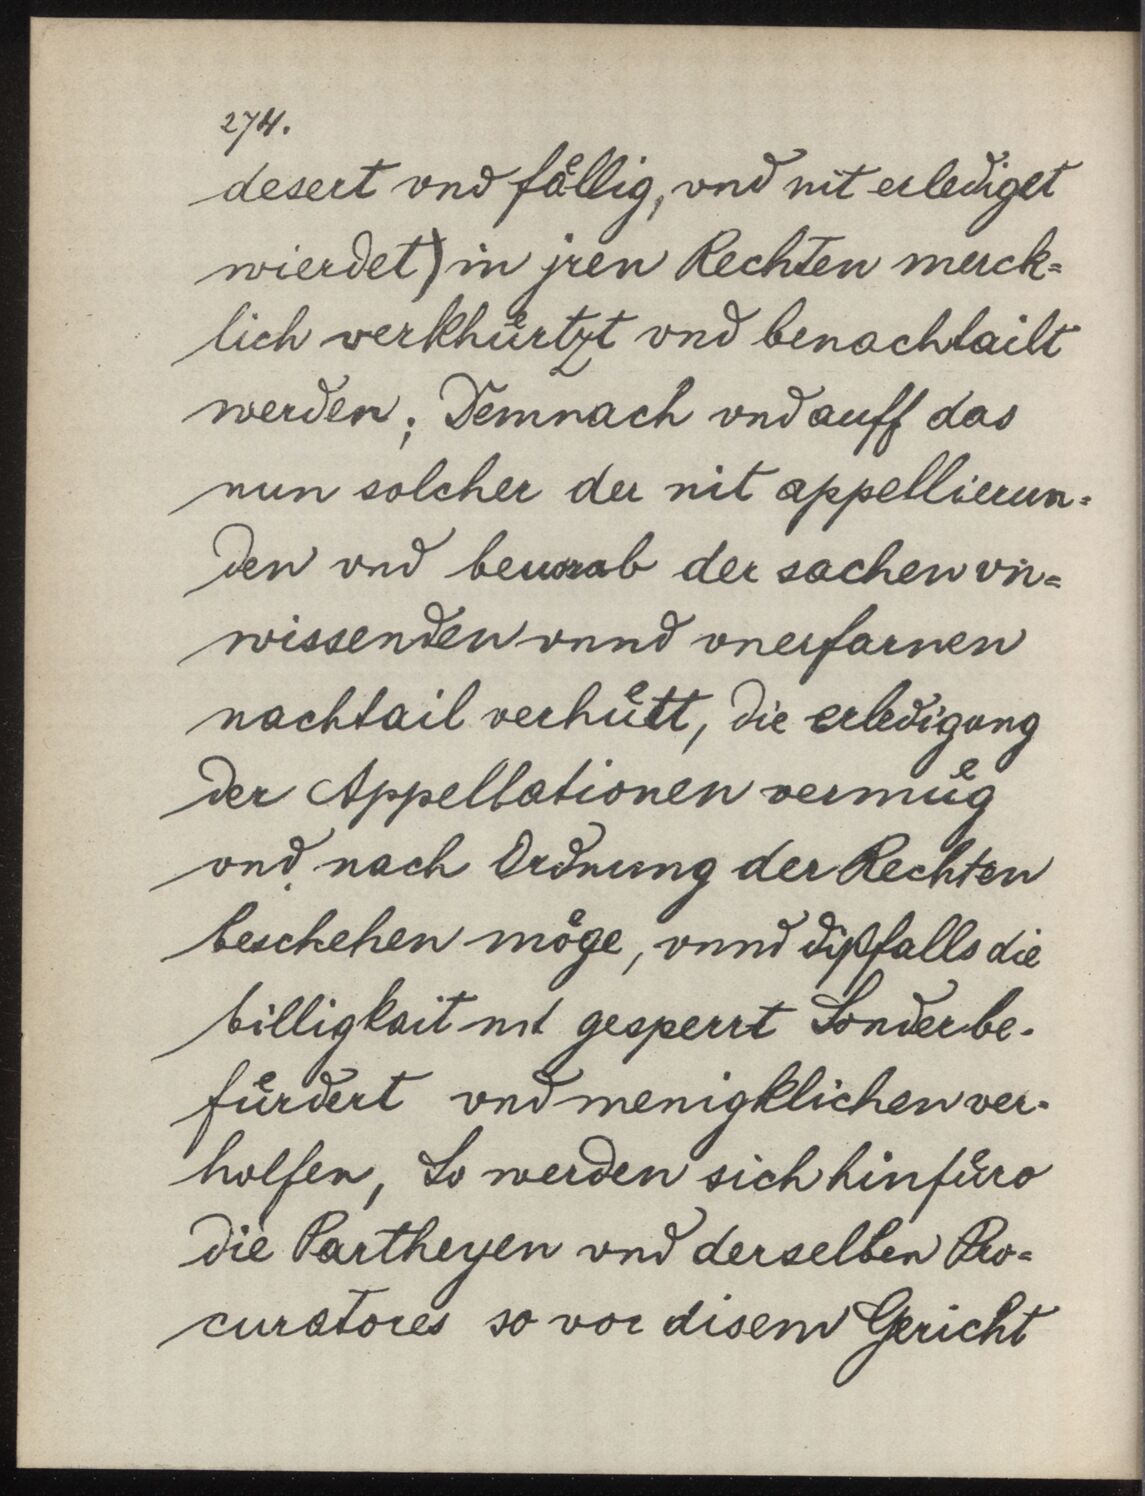 274.
desert vnd fällig, vnd nit erlediget
wierdet) in jren Rechten merck=
lich verkhürtzt vnd benachtailt
werden; Demnach vnd auff das
nun solcher der nit appellierun=
den vnd beuorab der sachen vn=
wissenden vnnd vnerfarnen
nachtail verhütt, die erledigung
der Appellationen vermüg
vnd nach Ordnung der Rechten
beschehen möge, vnnd dißfalls die
billigkait nit gesperrt Sonder be-
fürdert vnd menigklichen ver-
holfen, So werden sich hinfüro
die Partheyen vnd derselben Pro=
curatores so vor disem Gericht